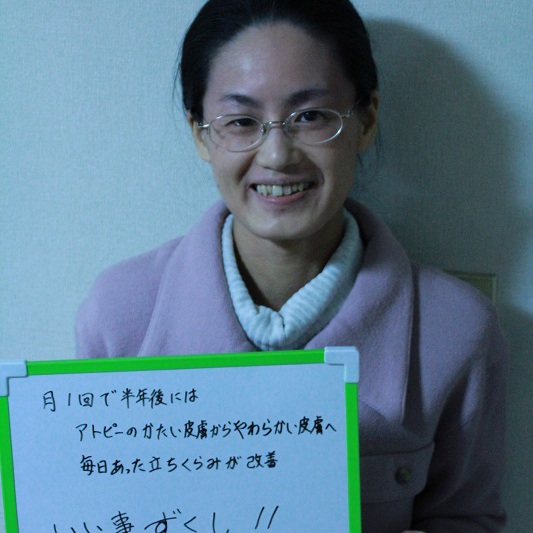 月1回で半年後には
アトピーのかたい皮膚からやわらかい皮膚へ
毎日あった立ちくらみが改善
いい事ずくし!!